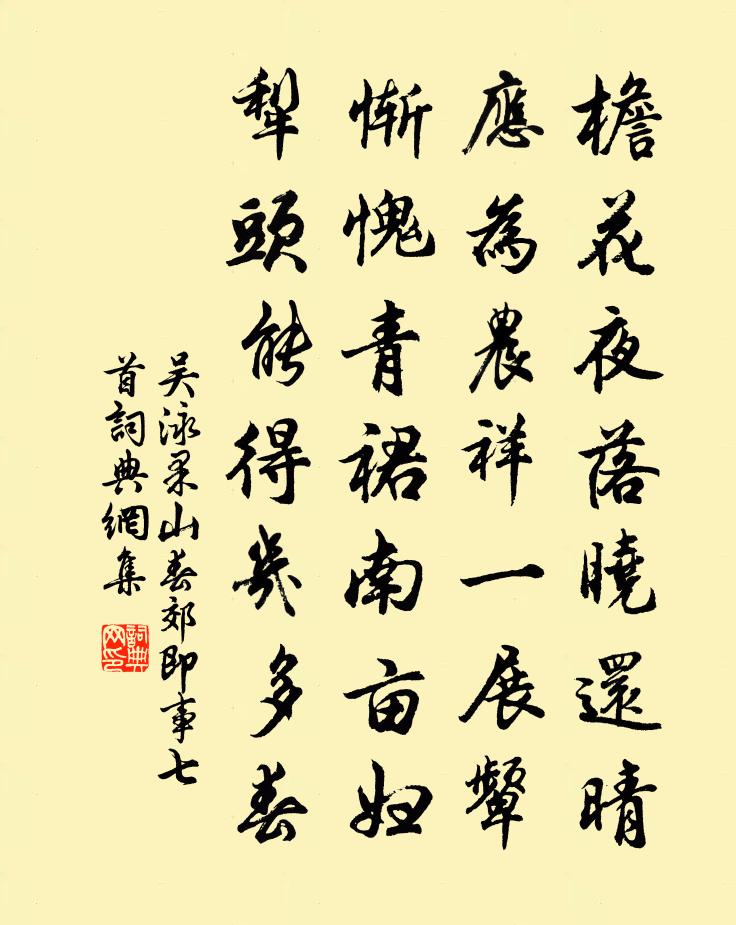 檐花夜落曉還晴
應為農祥一展顰
慚愧青裙南亩婦
犁頭能得幾多春
吴泳果山春郊即事七
首詞典網集
詞典網印